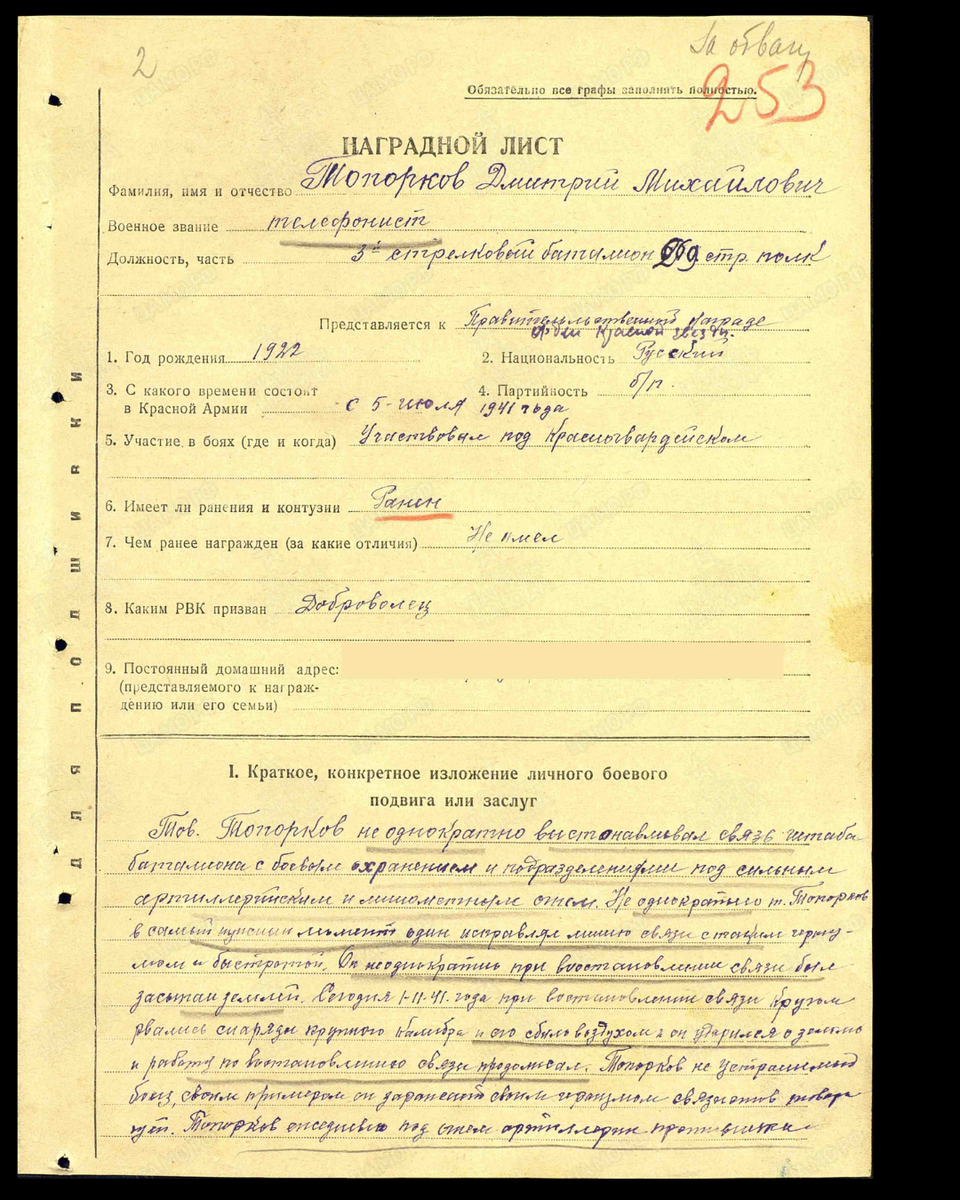 2
За отвагу
253
Обязательно все графы заполнять полностью.
НАГРАДНОЙ ЛИСТ
Фамилия, имя и отчество Топорков Дмитрий Михайлович
Военное звание телефонист
Должность, часть 3й стрелковый баталион стр. полк
Представляется к Правительственной награде
орден Красной звезды.
1. Год рождения 1922
2. Национальность Русский
3. С какого времени состоит
в Красной Армии с 5-июля 1941 года
4. Партийность б/п.
5. Участие в боях (где и когда) Участвовал под Красногвардейском
6. Имеет ли ранения и контузии Ранен
7. Чем ранее награжден (за какие отличия) Не имел
8. Каким РВК призван Доброволец
9. Постоянный домашний адрес:
(представляемого к награж-
дению или его семьи)
Для подшивки
I. Краткое, конкретное изложение личного боевого
подвига или заслуг
Тов. Топорков не однократно выстонавливал связь штаба
баталиона с боевым охранением и подразделениями под сильным
артиллерийским и минометным огнем. Не однократно т. Топорков
в самый нужный момент один исправлял линию связи с таким героиз-
мом и быстротой. Он неоднократно при восстановлении связи был
засыпан землей. Сегодня 1-11-41. года при востановлении связи кругом
рвались снаряды крупного калибра и его сбило воздухом и он ударился о землю
и работу по востановлению связи продолжал. Топорков не устрашимый
боец, своим примером он заражает своим героизмом связистов товари-
щей. Топорков ежедневно под огнем артиллерии противника